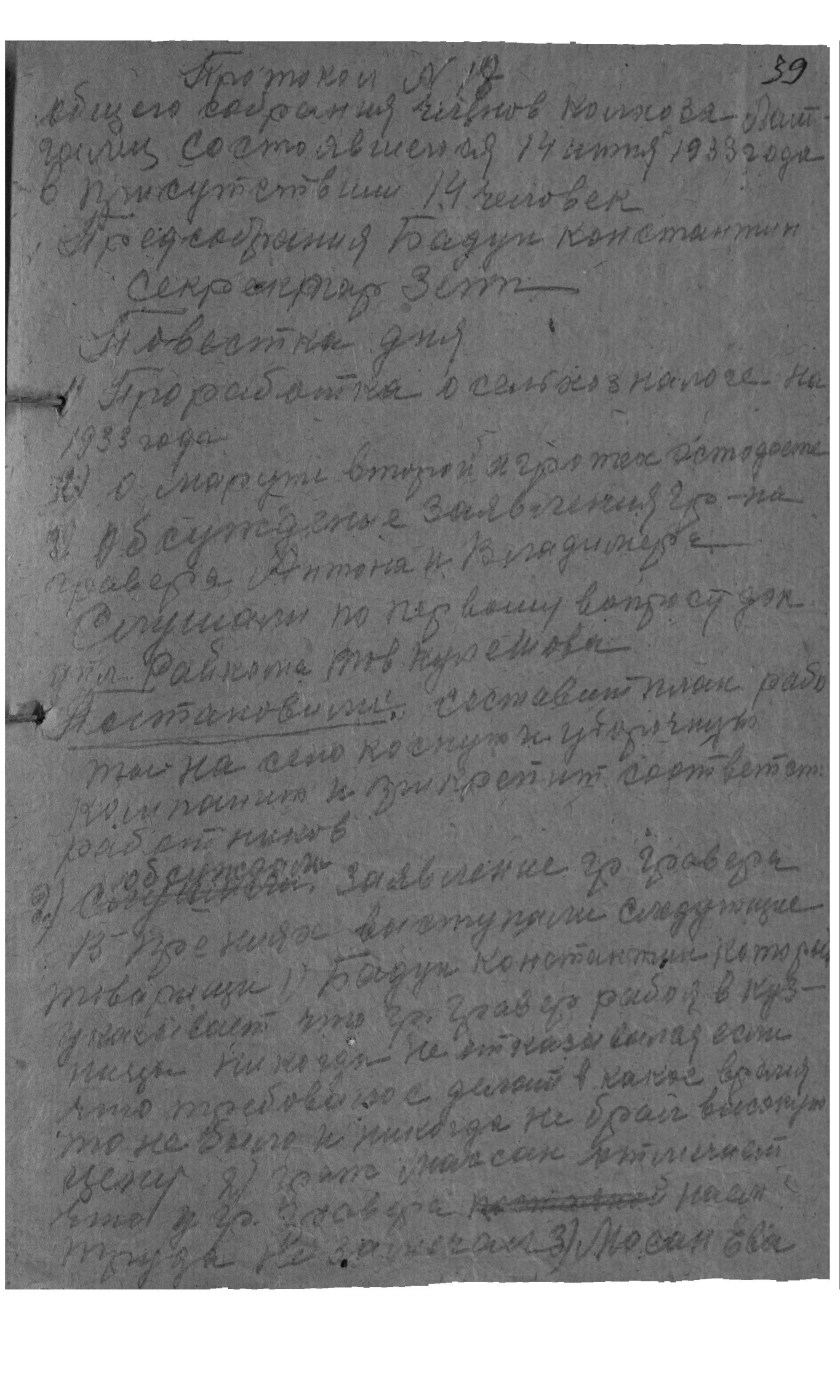 39
Протокол N 17
общего собрания членов колхоза
состоявшегося 14 1933 года
в присутствии 14 человек
Предсобрания Бадун Константин
секректар Зетп
Повестка дня
1) Проработка о сельхозналоге на
1933 года
2) о второй
3) Обсужденые заявления гр-на
гравера Антона и Владимера
Слушали по первому вопросу док
упл. Райкома тов Кулешова
Постановили: составит план рабо
ты на сено коскую и уборочную
компанию и прикрепит соответст.
работников
обсуждали
2) заявление гр гравера
В прениях выступали следующие
товарищи 1) Бадун Константин которы
указывает что гр. гравер работя в куз-
ницы никогда не отказывался если
что требовалос делат в какое время
то не было и никогда не брал высокую
цену 2) граж Массан отмечает
что у гр. гравера наем
труда не замечал 3) Мосан Ева